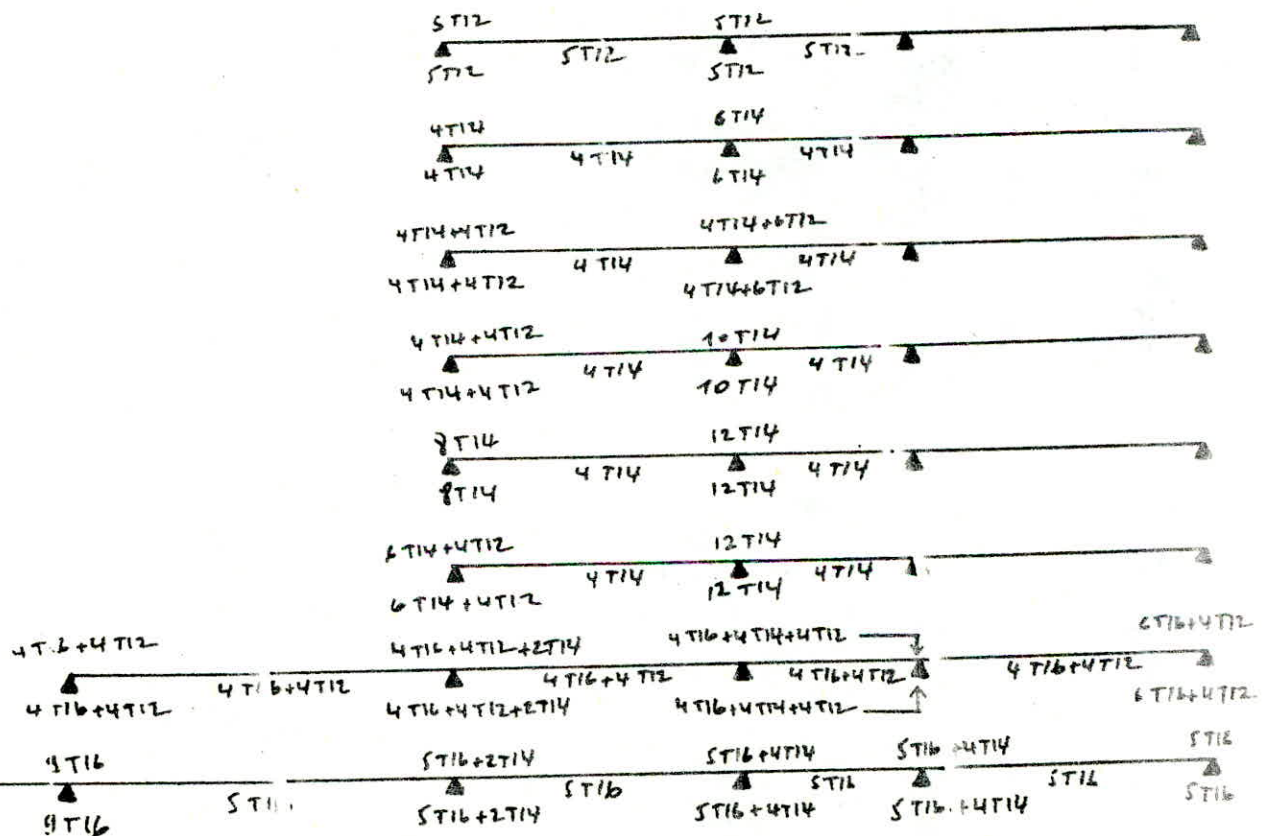 5T12 5T12
5T12 5T12 5T12 5T12
4T14 6T14
4T14 4T14 6T14 4T14
4T14+4T12 4T14+6T12
4T14+4T12 4T14 4T14+6T12 4T14
4T14+4T12 10T14
4T14+4T12 4T14 10T14 4T14
8T14 12T14
8T14 4T14 12T14 4T14
6T14+4T12 12T14
6T14+4T12 4T14 12T14 4T14
4T16+4T12 4T16+4T12+2T14 4T16+4T14+4T12 6T16+4T12
4T16+4T12 4T16+4T12 4T16+4T12 4T16+4T12
4T16+4T12 4T16+4T12+2T14 4T16+4T14+4T12 6T16+4T12
9T16 5T16+2T14 5T16+4T14 5T16+4T14 5T16
5T16 5T16 5T16
9T16 5T16+2T14 5T16+4T14 5T16+4T14 5T16